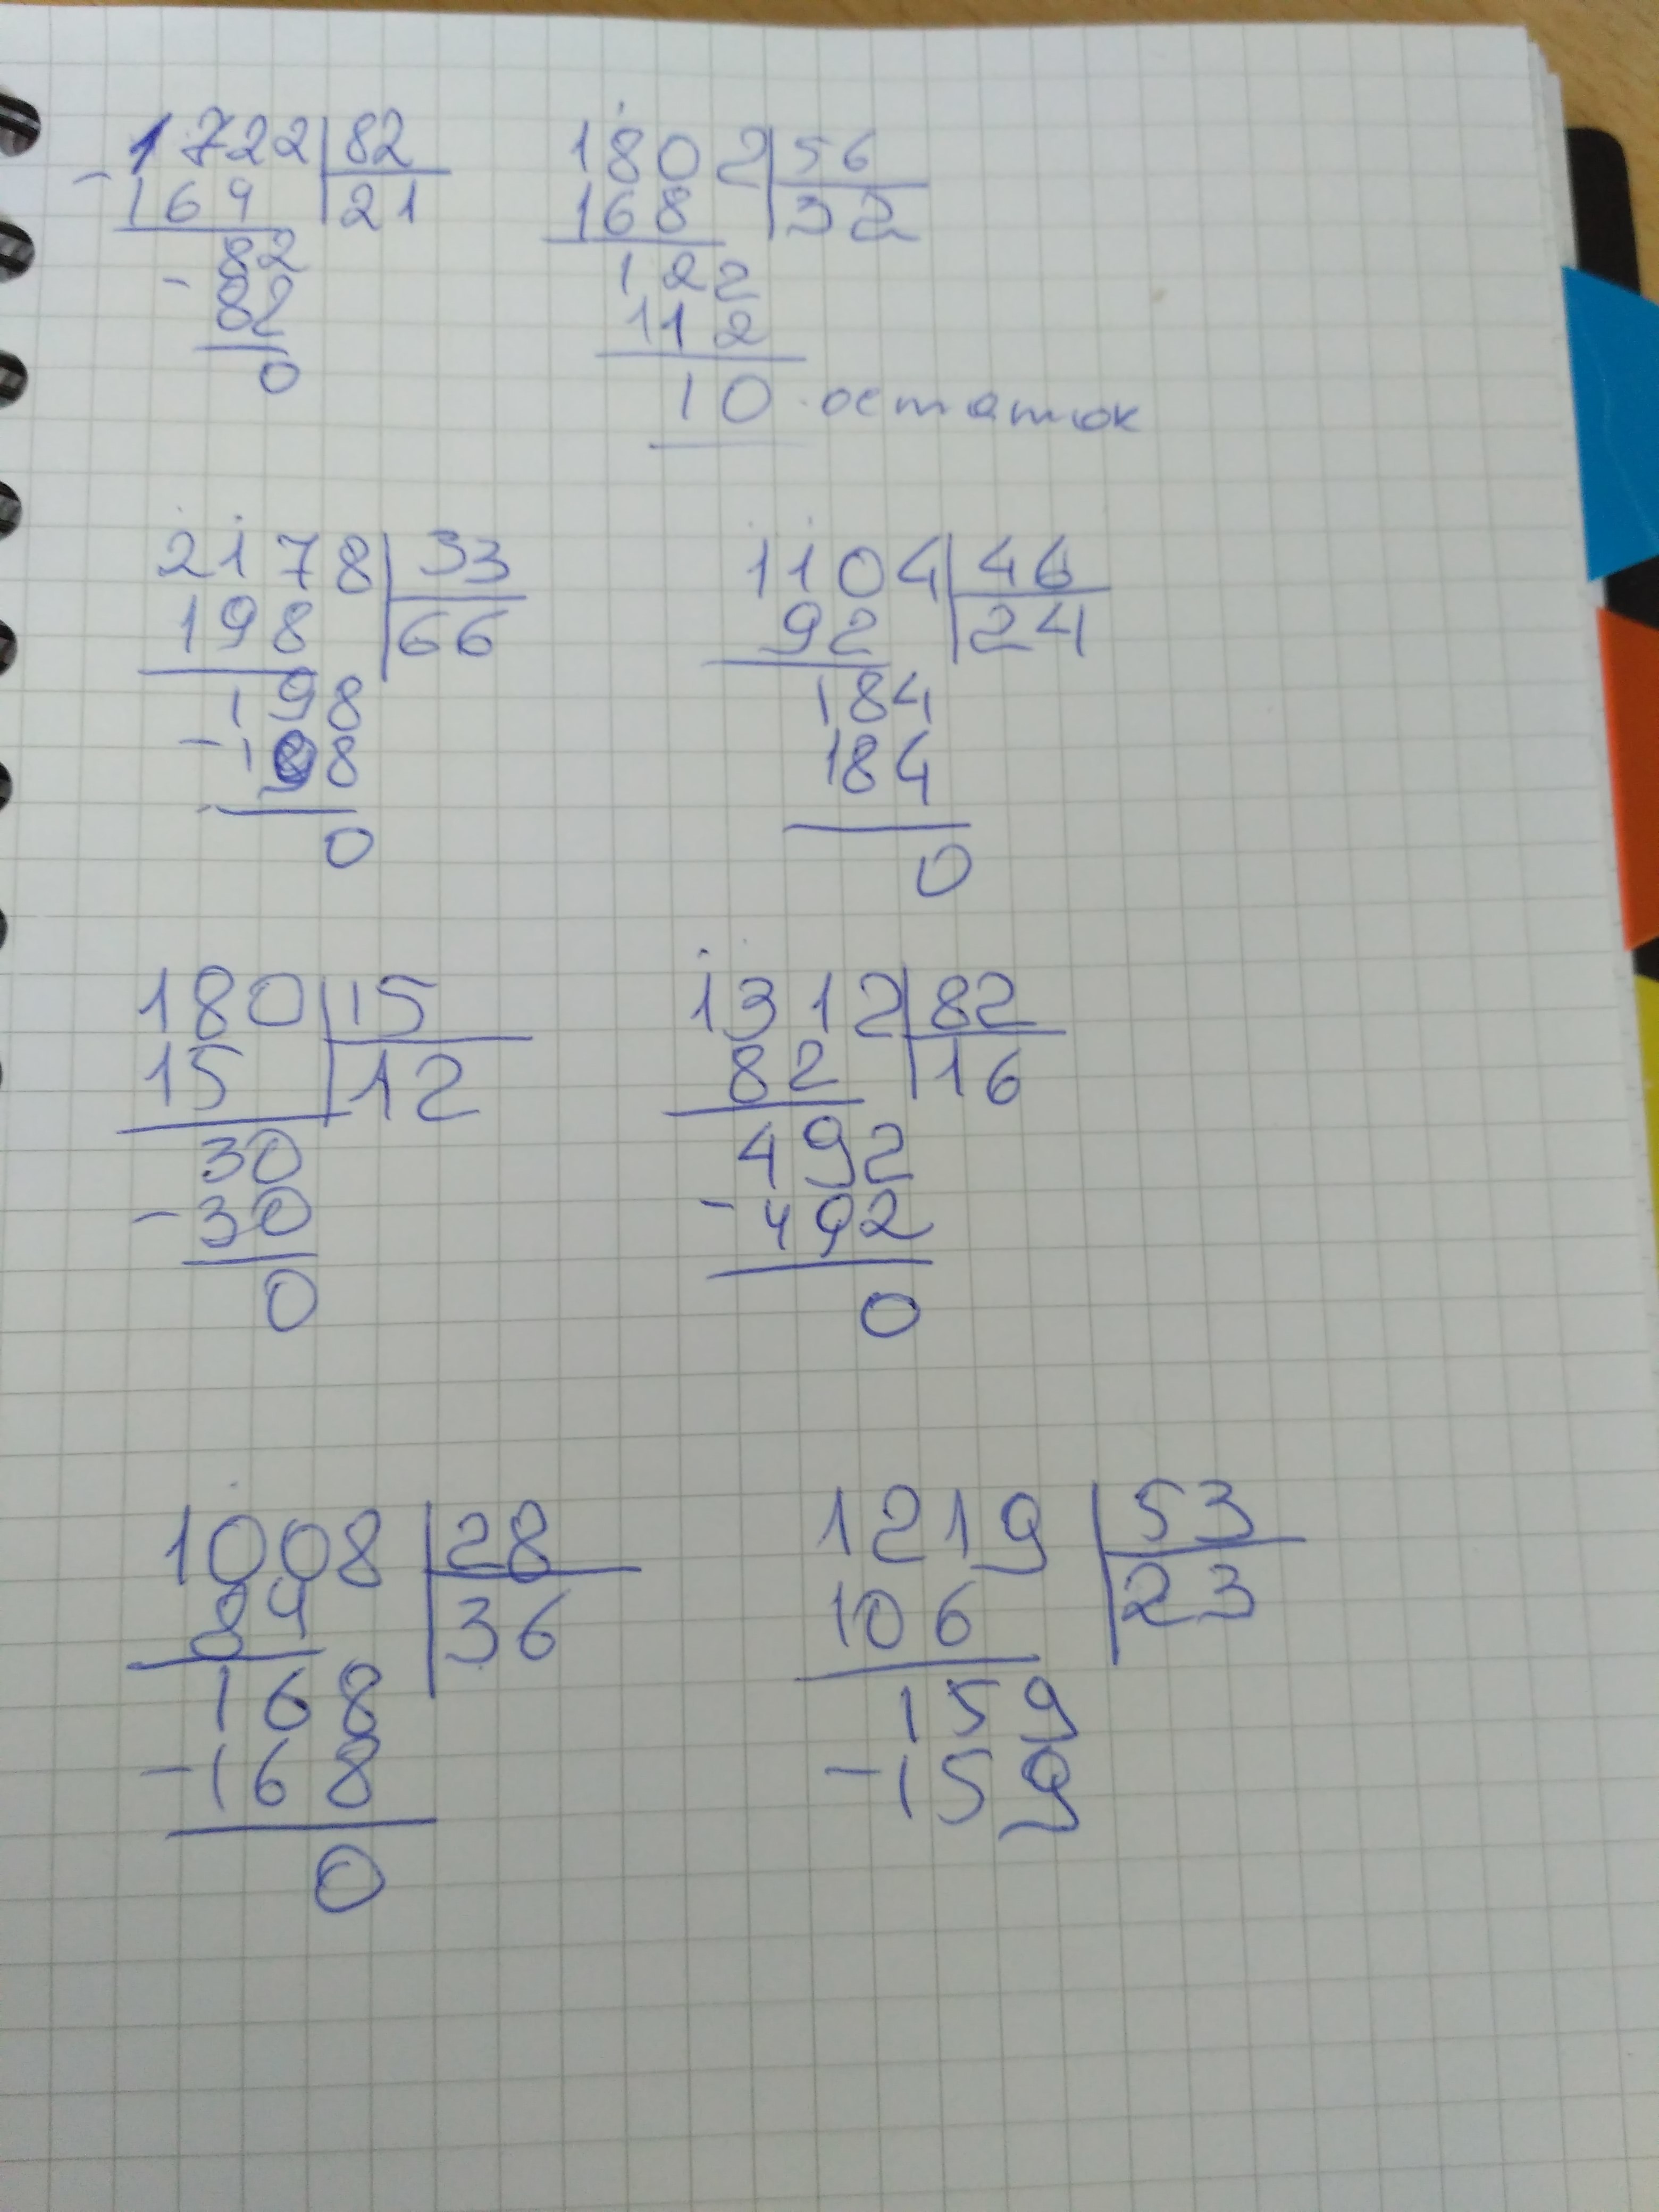 1722 82
- 164 21
82
- 82
0
1802 56
168 32
122
112
10 остаток
2178 33
198 66
198
- 198
0
1104 46
92 24
184
184
0
180 15
15 12
30
- 30
0
1312 82
82 16
492
- 492
0
1008 28
84 36
168
- 168
0
1219 53
106 23
159
- 159